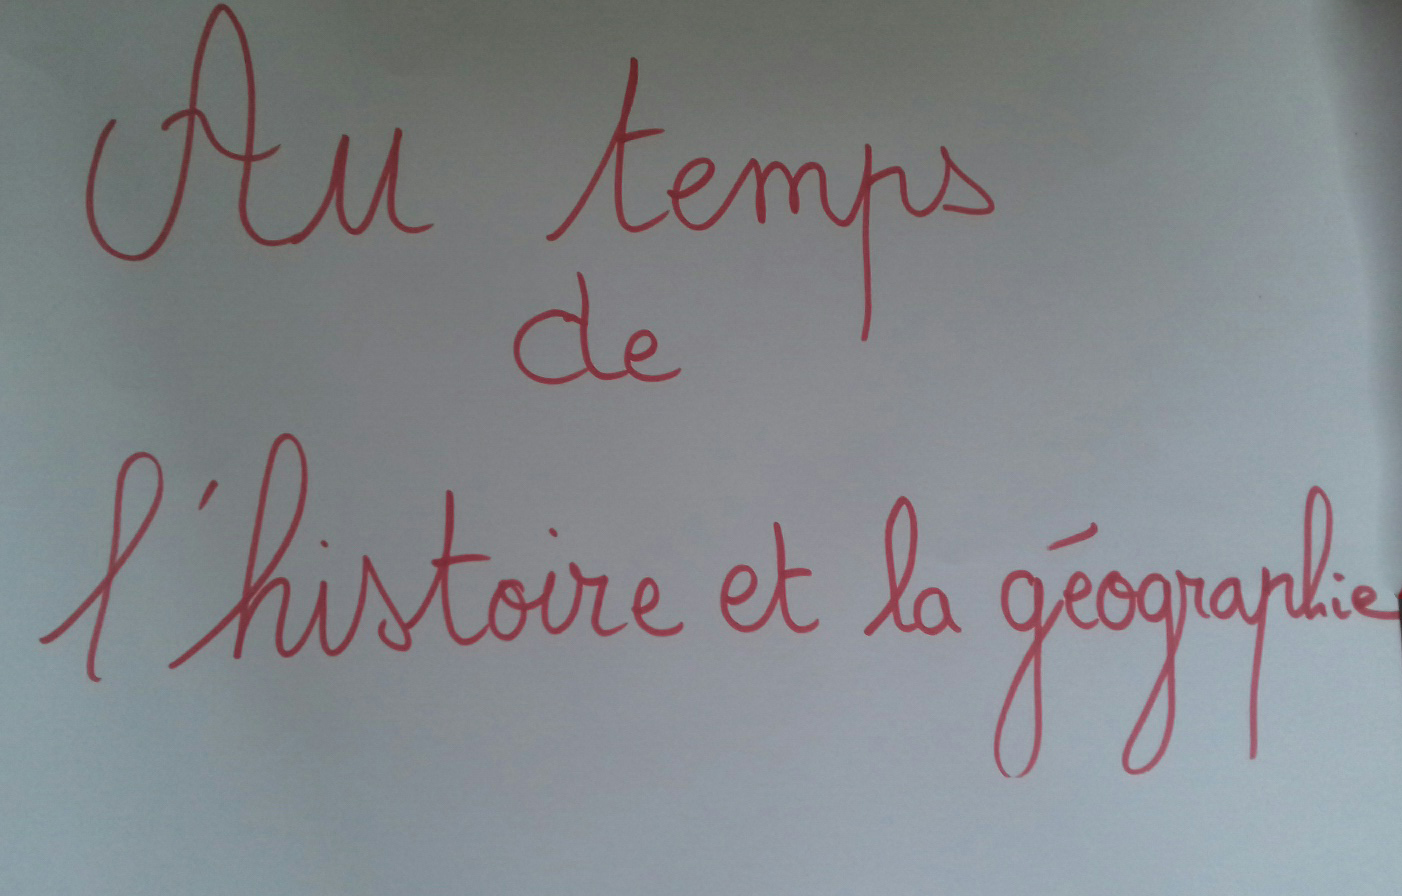 Au temps
de
l'histoire et la géographie